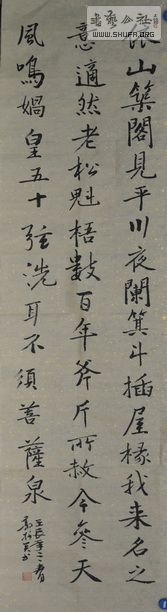 書藝公社
WWW.SHUFA.ORG
依山築閣見平川夜闌箕斗插屋椽我来名之
意適然老松魁梧數百年斧斤所赦今參天
風鳴媧皇五十弦洗耳不須菩薩泉
壬辰年之春